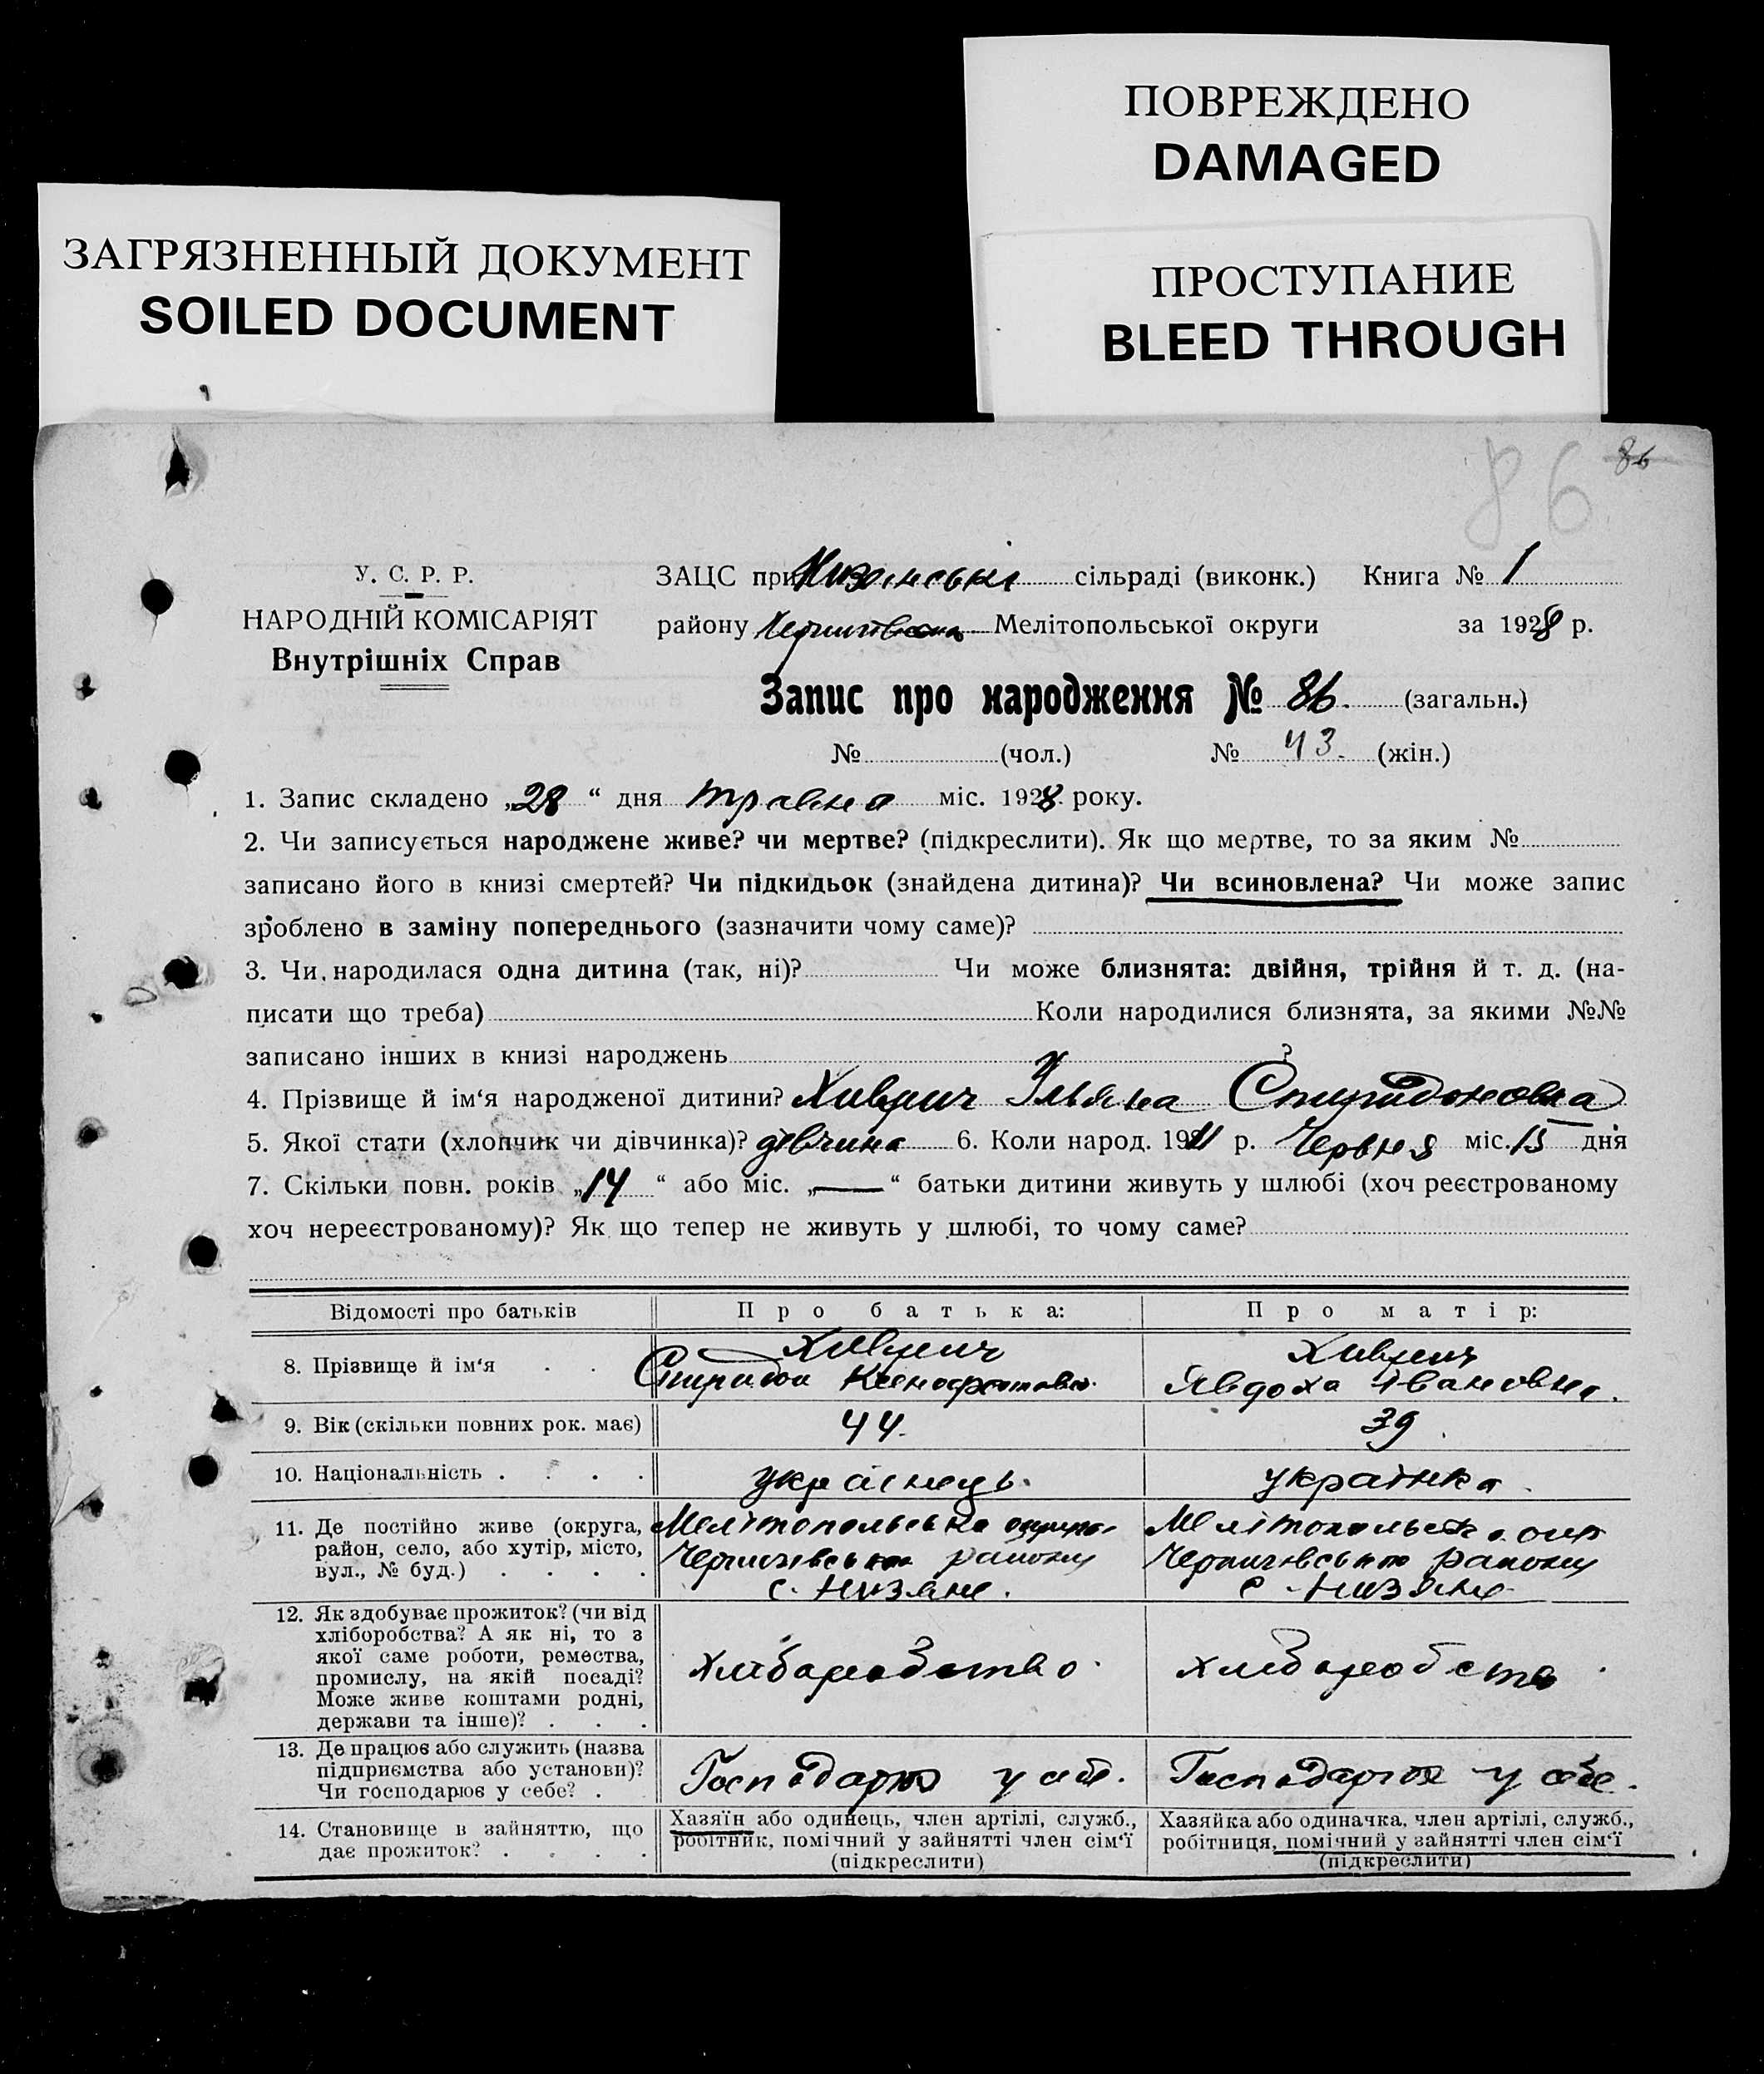 ПОВРЕЖДЕНО
DAMAGED
ЗАГРЯЗНЕННЫЙ ДОКУМЕНТ
SOILED DOCUMENT
ПРОСТУПАНИЕ
BLEED THROUGH
86 86
У. С. Р. Р.
НАРОДНІЙ КОМІСАРІЯТ
Внутрішніх Справ
ЗАЦС при сільраді (виконк.) Книга № 1
району Мелітопольської округи за 1928 р.
Запис про народження № 86. (загальн.)
№ (чол.) № 43. (жін.)
1. Запис складено „28“ дня травня міс. 1928 року.
2. Чи записується народжене живе? чи мертве? (підкреслити). Як що мертве, то за яким №
записано його в книзі смертей? Чи підкидьок (знайдена дитина)? Чи всиновлена? Чи може запис
зроблено в заміну попереднього (зазначити чому саме)?
3. Чи народилася одна дитина (так, ні)? Чи може близнята: двійня, трійня й т. д. (на-
писати що треба) Коли народилися близнята, за якими №№
записано інших в книзі народжень ?
4. Прізвище й ім‘я народженої дитини? Ульяна Спиридоновна
5. Якої стати (хлопчик чи дівчинка)? дівчина 6. Коли народ. 1911 р. Червня міс. 15 дня
7. Скільки повн. років „14“ або міс. „—“ батьки дитини живуть у шлюбі (хоч реєстрованому
хоч нереєстрованому)? Як що тепер не живуть у шлюбі, то чому саме?
Відомості про батьків Про батька: Про матір:
8. Прізвище й ім‘я . . Явдоха Івановна.
9. Вік (скільки повних рок. має) 44. 39
10. Національність . . . . українець. українка.
11. Де постійно живе (округа, район, село, або хутір, місто, вул., № буд.) . . . .
Мелітопольська
Чернигівського району
с. Низяне.
Мелітопольська окр
Чернигівського району
с. Низяне
12. Як здобуває прожиток? (чи від
хліборобства? А як ні, то з
якої саме роботи, ремества,
промислу, на якій посаді?
Може живе коштами родні,
держави та інше)? . . .
хліборобство. хліборобство.
13. Де працює або служить (назва
підприємства або установи)?
Чи господарює у себе? .
Господарює у себе. Господарює у себе.
14. Становище в зайняттю, що
дає прожиток? . . . .
Хазяїн або одинець, член артілі, служб.,
робітник, помічний у зайнятті член сім‘ї
(підкреслити)
Хазяйка або одиначка, член артілі, служб.,
робітниця, помічний у зайнятті член сім‘ї
(підкреслити)